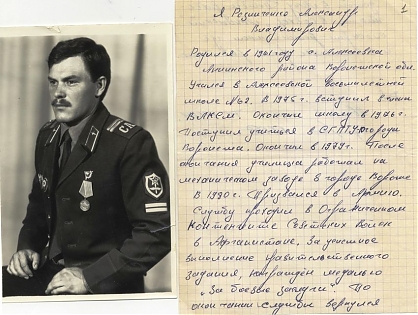 1
Я Розниченко Александр
Владимирович
Родился в 1961 году с. Алексеевка
района Воронежской обл.
Учился в Алексеевской восьмилетней
школе №2. В 1975 г. вступил в члены
ВЛКСМ. Окончил школу в 1976 г.
Поступил учиться в города
Воронежа. Окончил в 1979 г. После
окончания училища работал на
механическом заводе в городе Вороне
В 1980 г. Призвался в Армию.
Службу проходил в Ограниченном
Контингенте Советских Войск
в Афганистане. За успешное
выполнение правительственного
задания, награждён медалью
"За боевые заслуги" По
окончании службы вернулся
СА